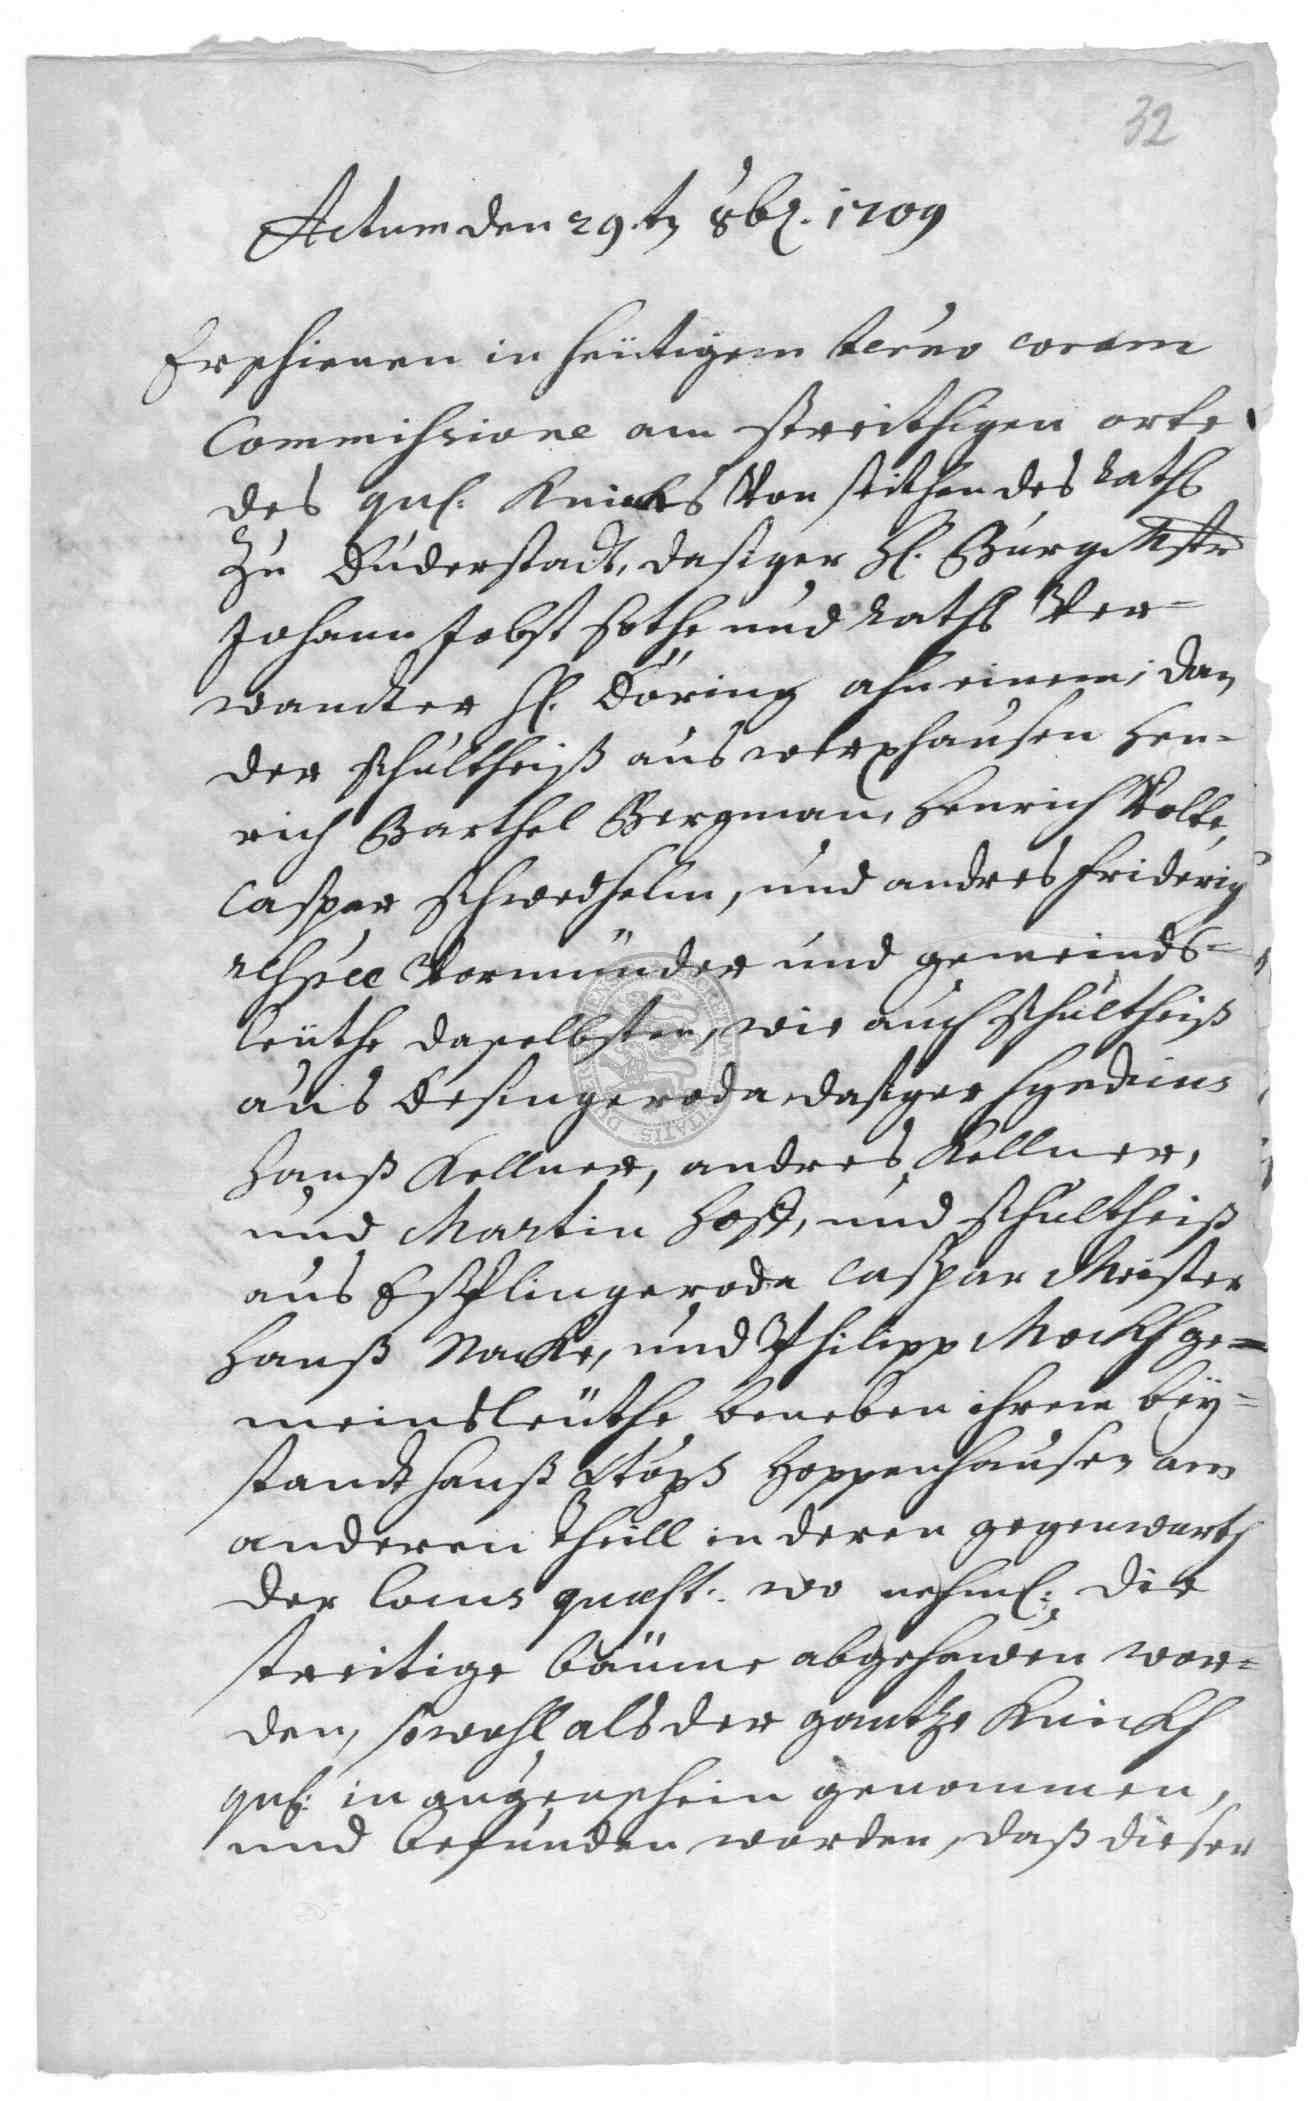 32
Actum den 29.tn 8br. 1709
Erschienen in heütigem termo coram
Commissione am streithigen orte
des qus. Knicks Von seithen des Raths
Zu Duderstadt, dasiger H. Burg Mstr
Johann Jobst Hothe und Raths Ver-
wandter H. Döring ahn einem, dan
der schultheiß aus werxhausen Hen-
rich Barthel Bergman, Henrich Volke,
Caspar schwedhelm, und andres friderig
respee Vormünder und gemeinds-
leüthe daselbsten, wie auch schultheiß
aus Desingeroda, dasiger syndicus
Hanß Kellner, andres Kellner,
und Martin Host, und schultheiß
aus Esplingeroda Caspar Meister
Hanß Nacke, und Philipp Mockh ge-
meinsleüthe beneben ihrem bey-
standt Hanß Hoppenhausen am
anderen theill in deren gegenwarth
der locus quaest. wo nehml: die
streitige bäume abgehawen wor-
den, sowohl als der gantze Knickh
qus: in augenschein genommen,
und befunden worden, daß dieser